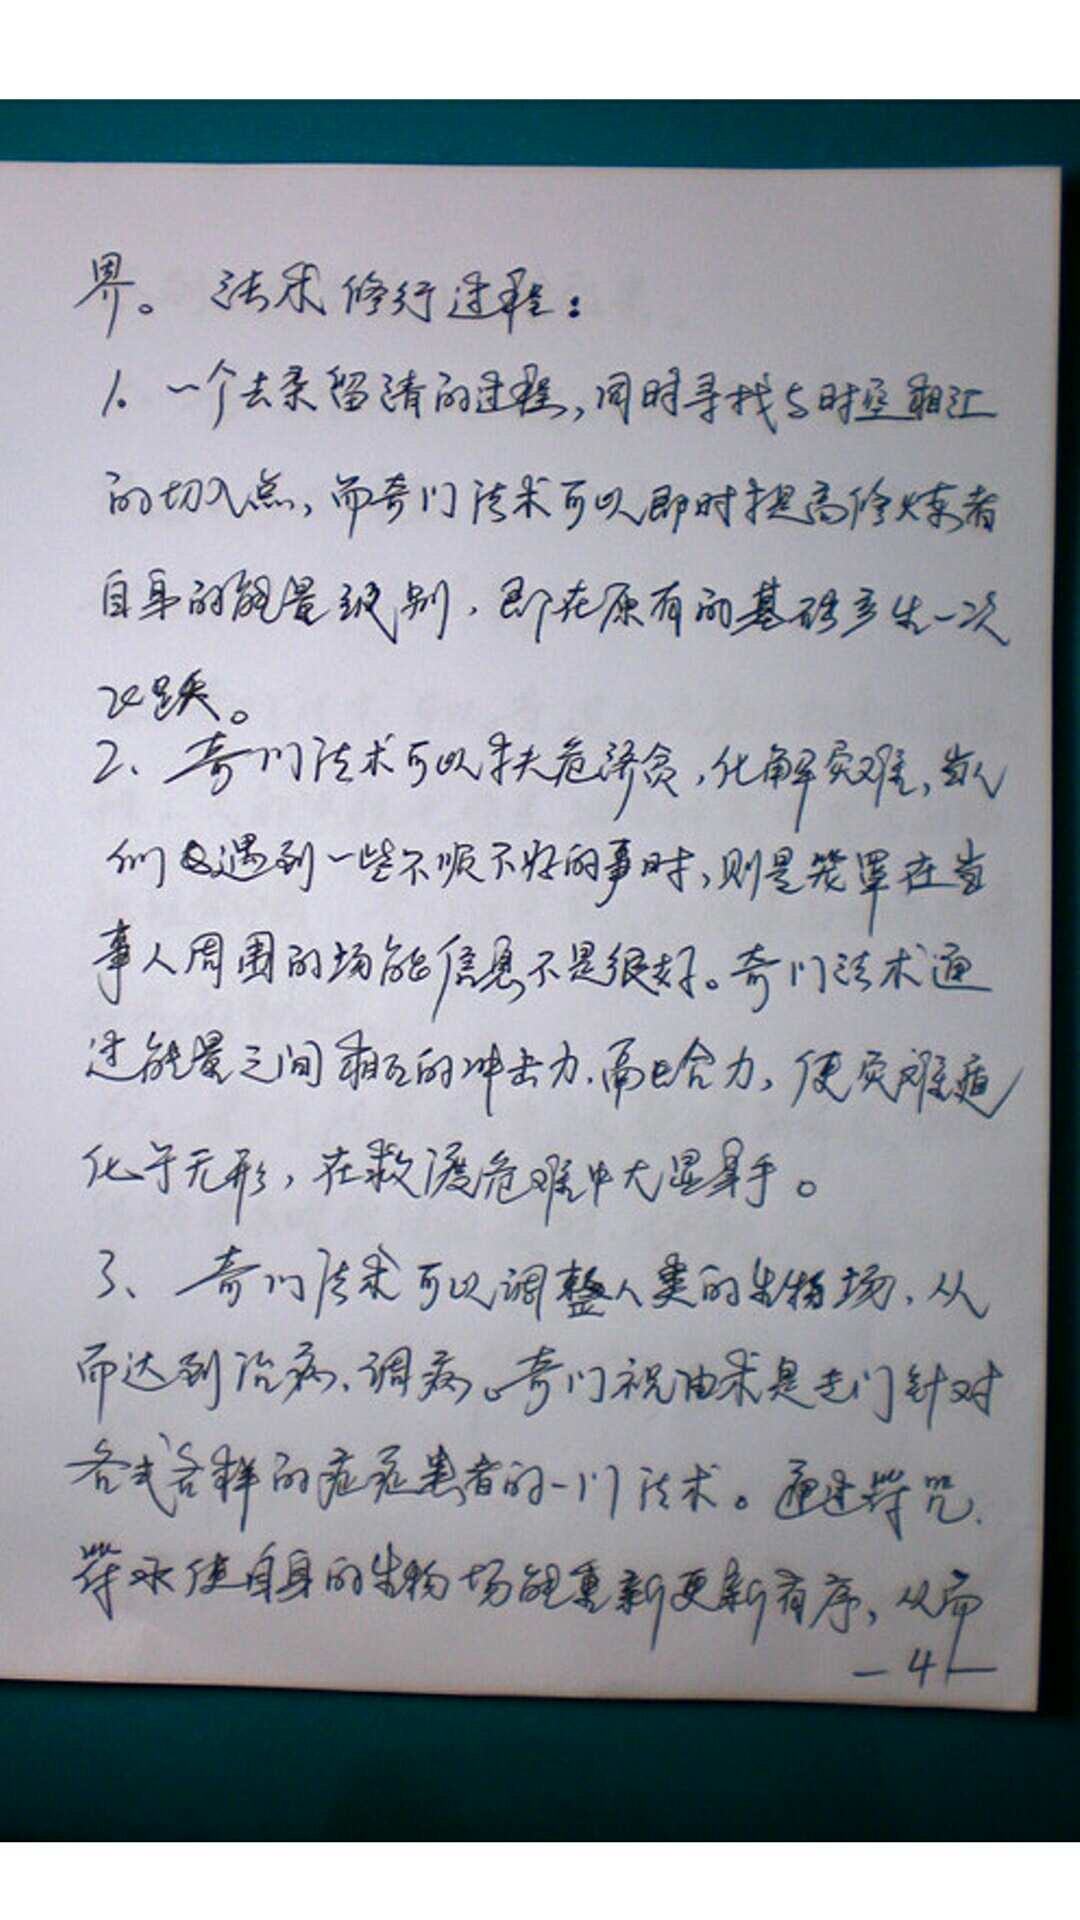 界。 法术修行过程：
1. 一个去柔留清的过程，同时寻找与时空相汇
的切入点，而奇门法术可以即时提高修炼者
自身的能量级别，即在原有的基础产生一次
飞跃。
2、奇门法术可以扶危济贫，化解灾难，当人
们遇到一些不顺不好的事时，则是笼罩在当
事人周围的场能信息不是很好。奇门法术通
过能量之间相互的冲击力、合力，使灾难遁
化于无形，在救渡危难中大显身手。
3、奇门法术可以调整人类的生物场，从
而达到治病、调病。奇门祝由术是专门针对
各式各样的症患者的一门法术。通过符咒、
符水使自身的生物场能重新更新有序，从而
—4—